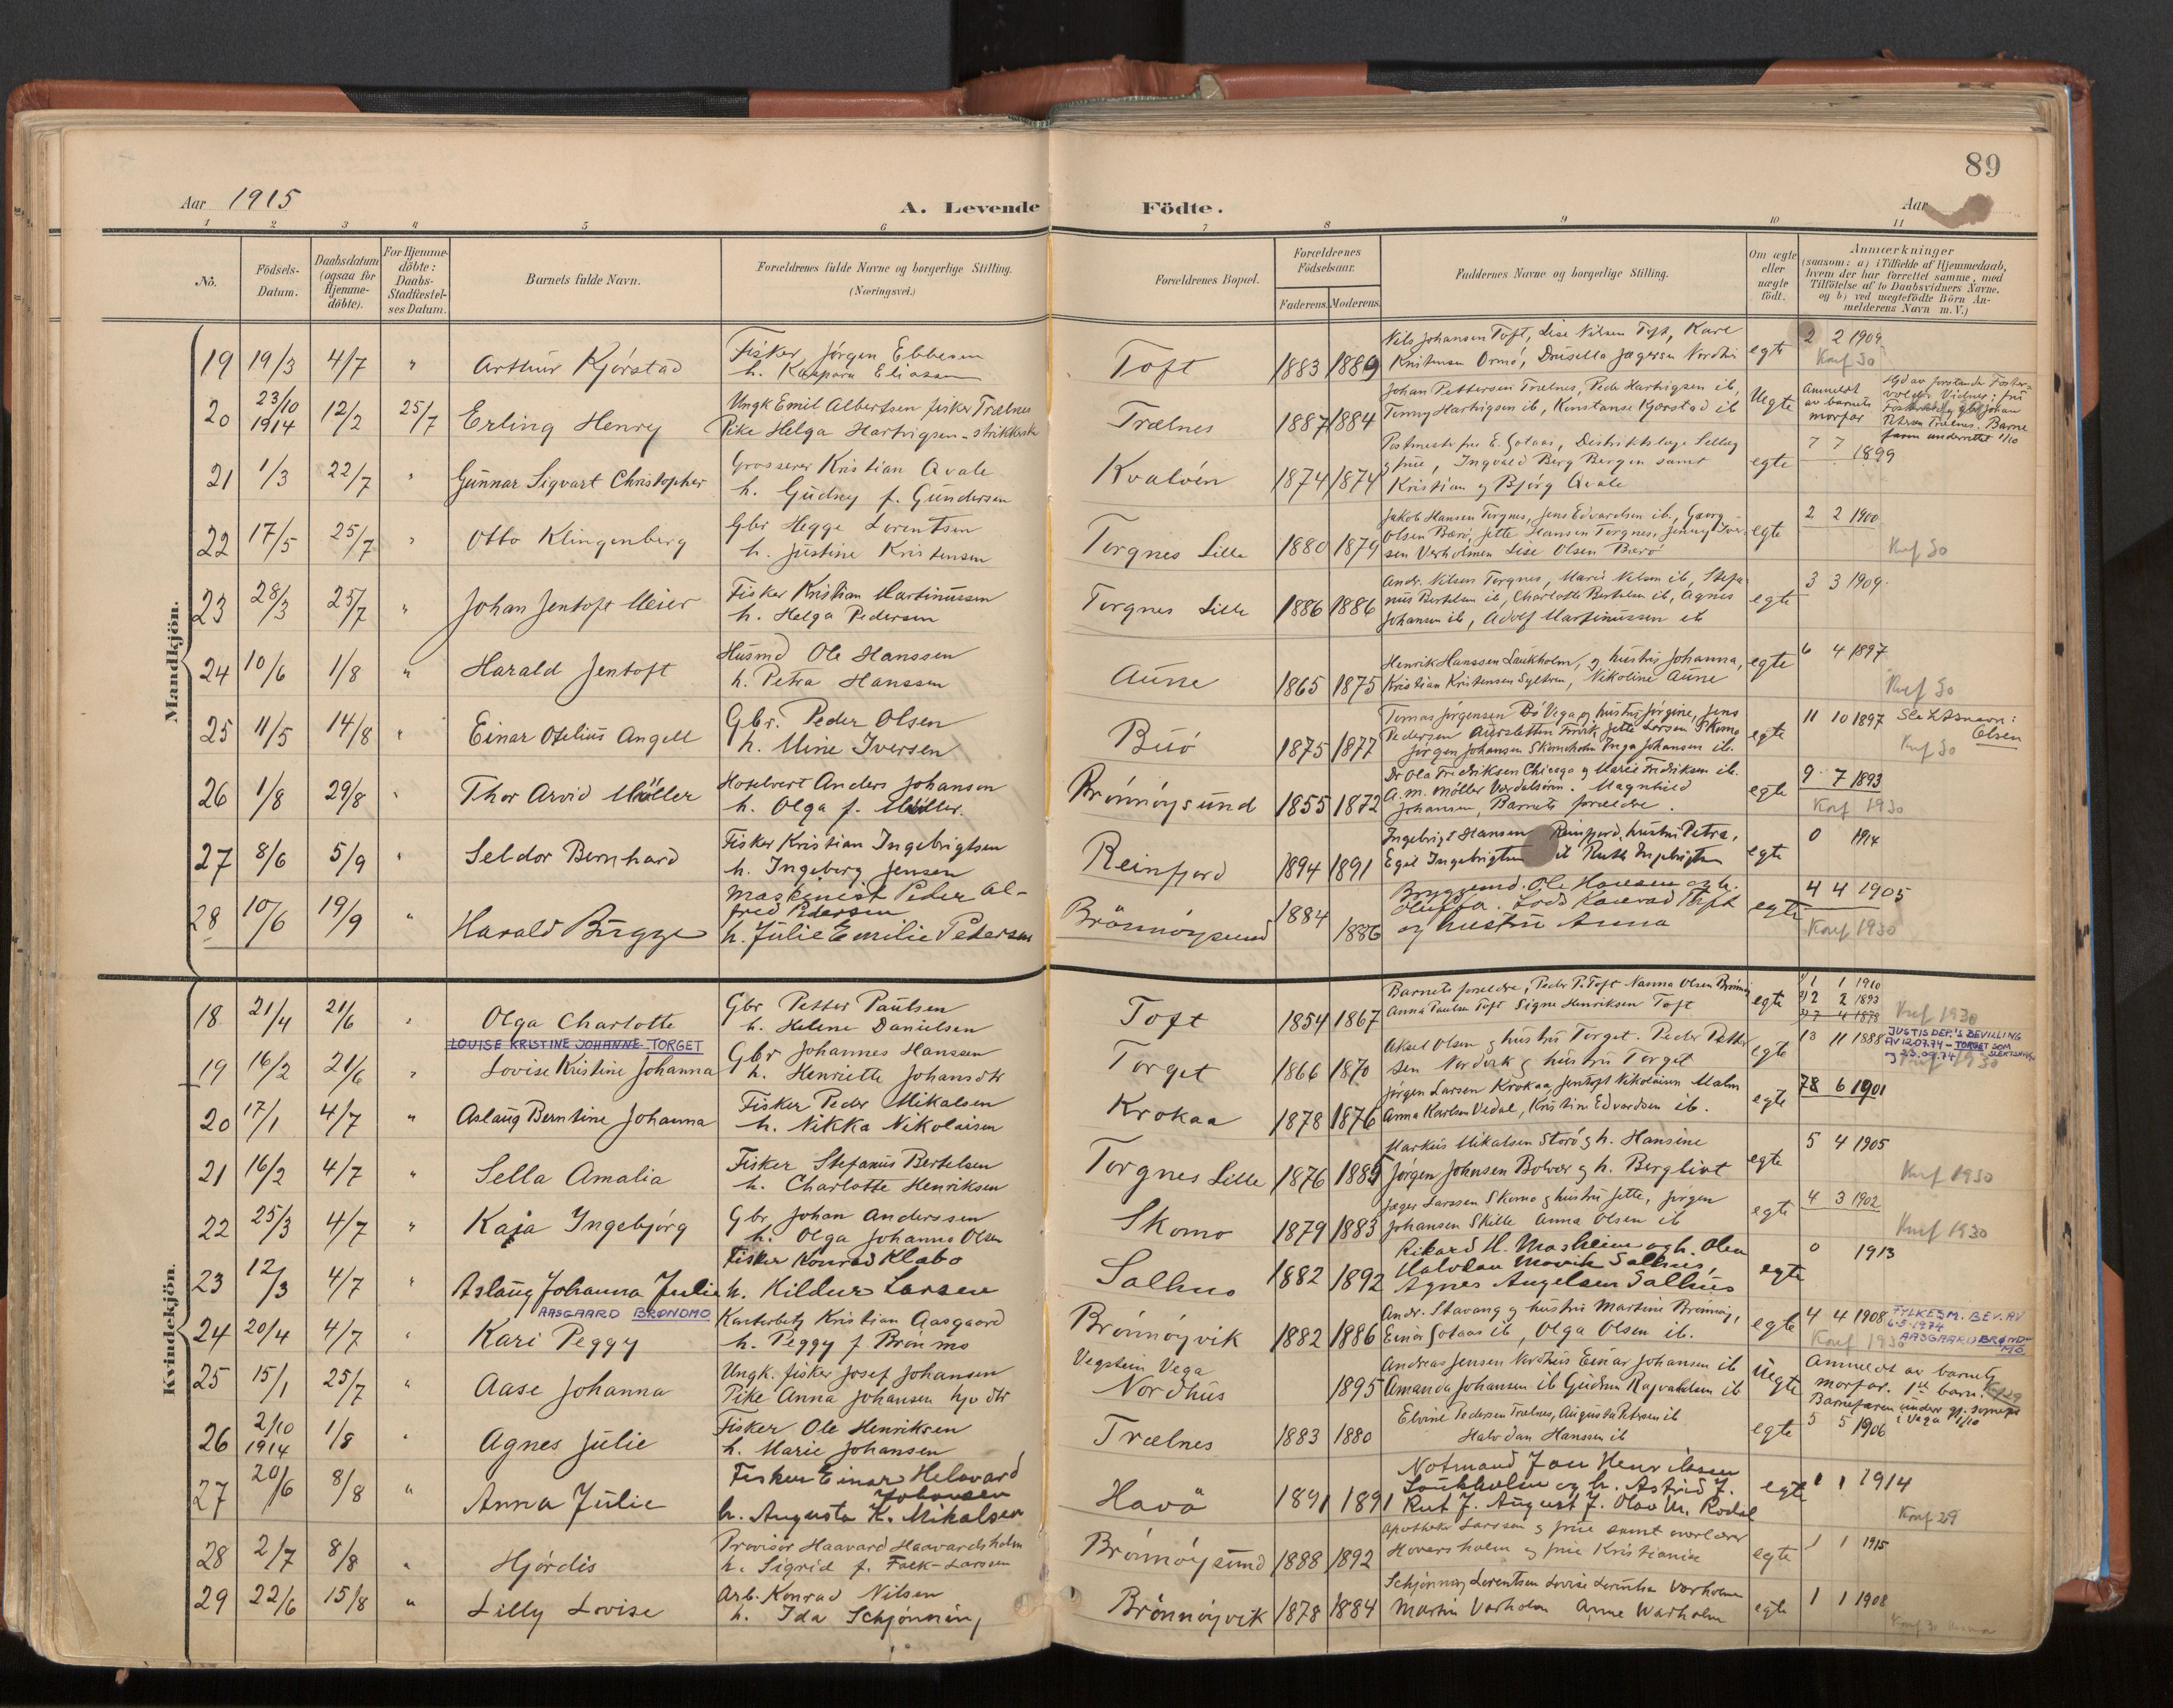 89
Aar 1915
A. Levende Födte.
Aar
1 2 3 4 5 6 7 8 9 10 11
No.
Födsels-
Datum.
Daabsdatum
(ogsaa for
Hjemme-
döbte).
For Hjemme-
döbte:
Daabs-
Stadfæstel-
ses Datum.
Barnets fulde Navn.
Forældrenes fulde Navne og borgerlige Stilling.
(Næringsvei.)
Forældrenes Bopæl.
Forældrenes
Födselsaar.
Faderens. Moderens.
Faddernes Navne og borgerlige Stilling.
Om ægte
eller
uægte
födt.
Anmærkninger
(saasom: a) i Tilfælde af Hjemmedaab,
hvem der har forrettet samme, med
Tilföielse af to Daabsvidners Navne.
og b) ved uægtefödte Börn An-
melderens Navn m. V.)
Mandkjön.
19 19/3 4/7 " Arthur Kjörstad
Fisker Jörgen Ebbesen
h. Kaspara Eliassen
Toft 1883 1889
Nils Johansen Toft, Lise Nilsen Toft, Karl
Kristensen Ormö, Drusella Jægersen Nordhus
egte
2 2 1909
Konf 30
20 23/10 1914 12/2 25/7 Erling Henry
Ungk Emil Albertsen fisker Trælnes
Pike Helga Hartvigsen - strikkerske
Trælnes 1887 1884
Johan Pettersen Trælnes, Peder Hartvigsen ib,
Jenny Hartvigsen ib, Konstanse Kjørstad ib
Uegte
Anmeldt
av barnets
morfar
21 1/3 22/7 " Gunnar Sigvart Christopher
Grosserer Kristian Qvale
h. Gudny f. Gundersen
Kvalöen 1874 1874
Postmester frue E. Gotaas, Distriktslæge Selbeg
og frue, Ingvald Berg Bergen samt
Kristian og Bjørg Qvale
egte
7 7 1899
22 17/5 25/7 " Otto Klingenberg
Gbr Hegge Lorentsen
h. Justine Kristensen
Torgnes Lille 1880 1879
Jakob Hansen Torgnes, Jens Edvardsen ib., Georg
Olsen Bærö, Jette Hansen Torgnes, Jenny Iver-
sen Verholmen Lise Olsen Bærö
egte
2 2 1900
Konf 30
23 28/3 25/7 " Johan Jentoft Meier
Fisker Kristian Martinussen
h. Helga Pedersen
Torgnes Lille 1886 1886
Andr. Nilsen Torgnes, Marie Nilsen ib, Stefa-
nus Bertelsen ib, Charlotte Bertelsen ib, Agnes
Johansen ib, Adolf Martinussen ib
egte
3 3 1909.
24 10/6 1/8 " Harald Jentoft
Husmd Ole Hanssen
h. Petra Hanssen
Aune 1865 1875
Henrik Hanssen Laukholm, og hustru Johanna,
Kristian Kristensen Syltern, Nikoline Aune
egte
6 4 1897
Konf 30
25 11/5 14/8 " Einar Otelius Angell
Gbr. Peder Olsen
h. Mine Iversen
Buö 1875 1877
Tomas Jörgensen Bö Vega og hustru Jörgine, Jens
Pedersen Aursletten Jette Larsen Skomo
Jörgen Johansen Skomoholm Inga Johansen ib.
egte
11 10 1897 Slektsnavn:
Olsen
Konf 30
26 1/8 29/8 " Thor Arvid Möller
Hotelvert Anders Johanson
h. Olga f. Möller.
Brönnöysund 1855 1872
Dr Ola Fredriksen Chicago og Marie Fredriksen ib.
A. M. Möller Verdalsören. Magnhild
Johansen, Barnets forældre.
egte
9 7 1893
Konf 1930
27 8/6 5/9 " Seldor Bernhard
Fisker Kristian Ingebrigtsen
h. Ingeborg Jensen
Reinfjord 1894 1891
Ingebrigt Hansen Reinfjord, hustru Petra,
Egil Ingebrigtsen ib Ruth Ingebrigtsen
egte
0 1914
28 10/6 19/9 " Harald Brygge
Maskinist Peder Al-
fred Pedersen
h. Julie Emilie Pedersen
Brönnöysund 1884 1886
Bryggemd. Ole Hansen og h.
Oluffa. Lods Konrad Toft
og hustru Anna
egte
4 4 1905
Konf 1930
Kvindekjön.
18 21/4 21/6 " Olga Charlotte
Gbr Petter Paulsen
h. Helene Danielsen
Toft 1854 1867
Barnets forældre, Peder P. Toft Nanna Olsen Brönnöy
Anna Paulsen Toft Signe Henriksen Toft
egte
1 1 1910
2 2 1893
7 4 1878
Konf 1930
LOUISE KRISTINE JOHANNE TORGET
19 16/2 21/6 " Lovise Kristine Johanna
Gbr Johannes Hanssen
h. Henriette Johansdtr
Torget 1866 1870
Aksel Olsen og hustru Torget. Peder Petter-
sen Nordvik og hustru Torget
egte
13 11 1888
JUSTISDEP.'S BEVILLING
AV 12.07.74 - TORGET SOM
SLEKTSNAVN
Konf 1930
20 17/1 4/7 " Aslaug Berntine Johanna
Fisker Peder Mikalsen
h. Nikka Nikolaisen
Krokaa 1878 1876
Jörgen Larsen Krokaa, Jentoft Nikolaisen Malm
Anna Karlsen Vedal, Kristine Edvardsen ib.
egte
78 6 1901
21 16/2 4/7 " Sella Amalia
Fisker Stefanus Bertelsen
h. Charlotte Henriksen
Torgnes Lille 1876 1885
Markus Mikalsen Storö og h. Hansine
Jörgen Johnsen Bolvær og h. Bergliot
egte
5 4 1905
Konf 1930
22 25/3 4/7 " Kaja Ingebjörg
Gbr Johan Anderssen
h. Olga Johanna Olsen
Skomo 1879 1883
Jæger Larssen Skomo og hustru Jette, Jörgen
Johansen Skille Anna Olsen ib
egte
4 3 1902
Konf 1930
23 12/3 4/7 " Aslaug Johanna Julie
Fisker Konrad Klabo
h. Hildur Larsen
Salhus 1882 1892
Rikard H. Mosheim og h. Olea
Halvdan Movik Salhus,
Agnes Angelsen Salhus
egte
0 1913
AASGAARD BRØNDMO
24 20/4 4/7 " Kari Peggy
Kontorbetj Kristian Aasgaard
h. Peggy f. Brönmo
Brönnöyvik 1882 1886
Andr. Stavang og hustru Martine Brönnöy,
Einar Gotaas ib, Olga Olsen ib.
egte
4 4 1908
FYLKESM. BEV. AV
6-5-1974
AASGAARD BRØND-
MO
Konf 1930
25 15/1 25/7 " Aase Johanna
Ungk. fisker Josef Johansen
Pike Anna Johansen hjv dtr
Vegstein Vega
Nordhus 1895
Andreas Jensen Nordhus Einar Johansen ib
Amanda Johansen ib Gudrun Ragvaldsen ib
Uegte
Anmeldt av barnets
morfar. 1ste barn.
Barnefaren underr gj. sognepr
i Vega 1/10
26 2/10 1914 1/8 " Agnes Julie
Fisker Ole Henriksen
h. Marie Johansen
Trælnes 1883 1880
Elvine Pedersen Trælnes, Augusta Petersen ib
Halvdan Hanssen ib
egte
5 5 1906
27 20/6 8/8 " Anna Julie
Fisker Einar Helovard
Johansen
h. Augusta K. Mikalsen
Havö 1891 1891
Notmand Jon Henriksen
Laukholm og h. Astrid J.
Rut J. August J. Olav M. Rodal
egte
1 1 1914
Konf 29
28 2/7 8/8 " Hjördis
Provisor Haavard Haavardsholm
h. Sigrid f. Falk-Larssen
Brönnöysund 1888 1892
Apotheker Larssen og frue samt overlærer
Hoversholm og frue Kristiania
egte
1 1 1915
29 22/6 15/8 " Lilly Lovise
Arb. Konrad Nilsen
h. Ida Schjönning
Brönnöyvik 1878 1884
Schjönning Lorentsen Lovise Lorentsen Varholmen
Martin Varholm Anne Warholm
egte
1 1 1908